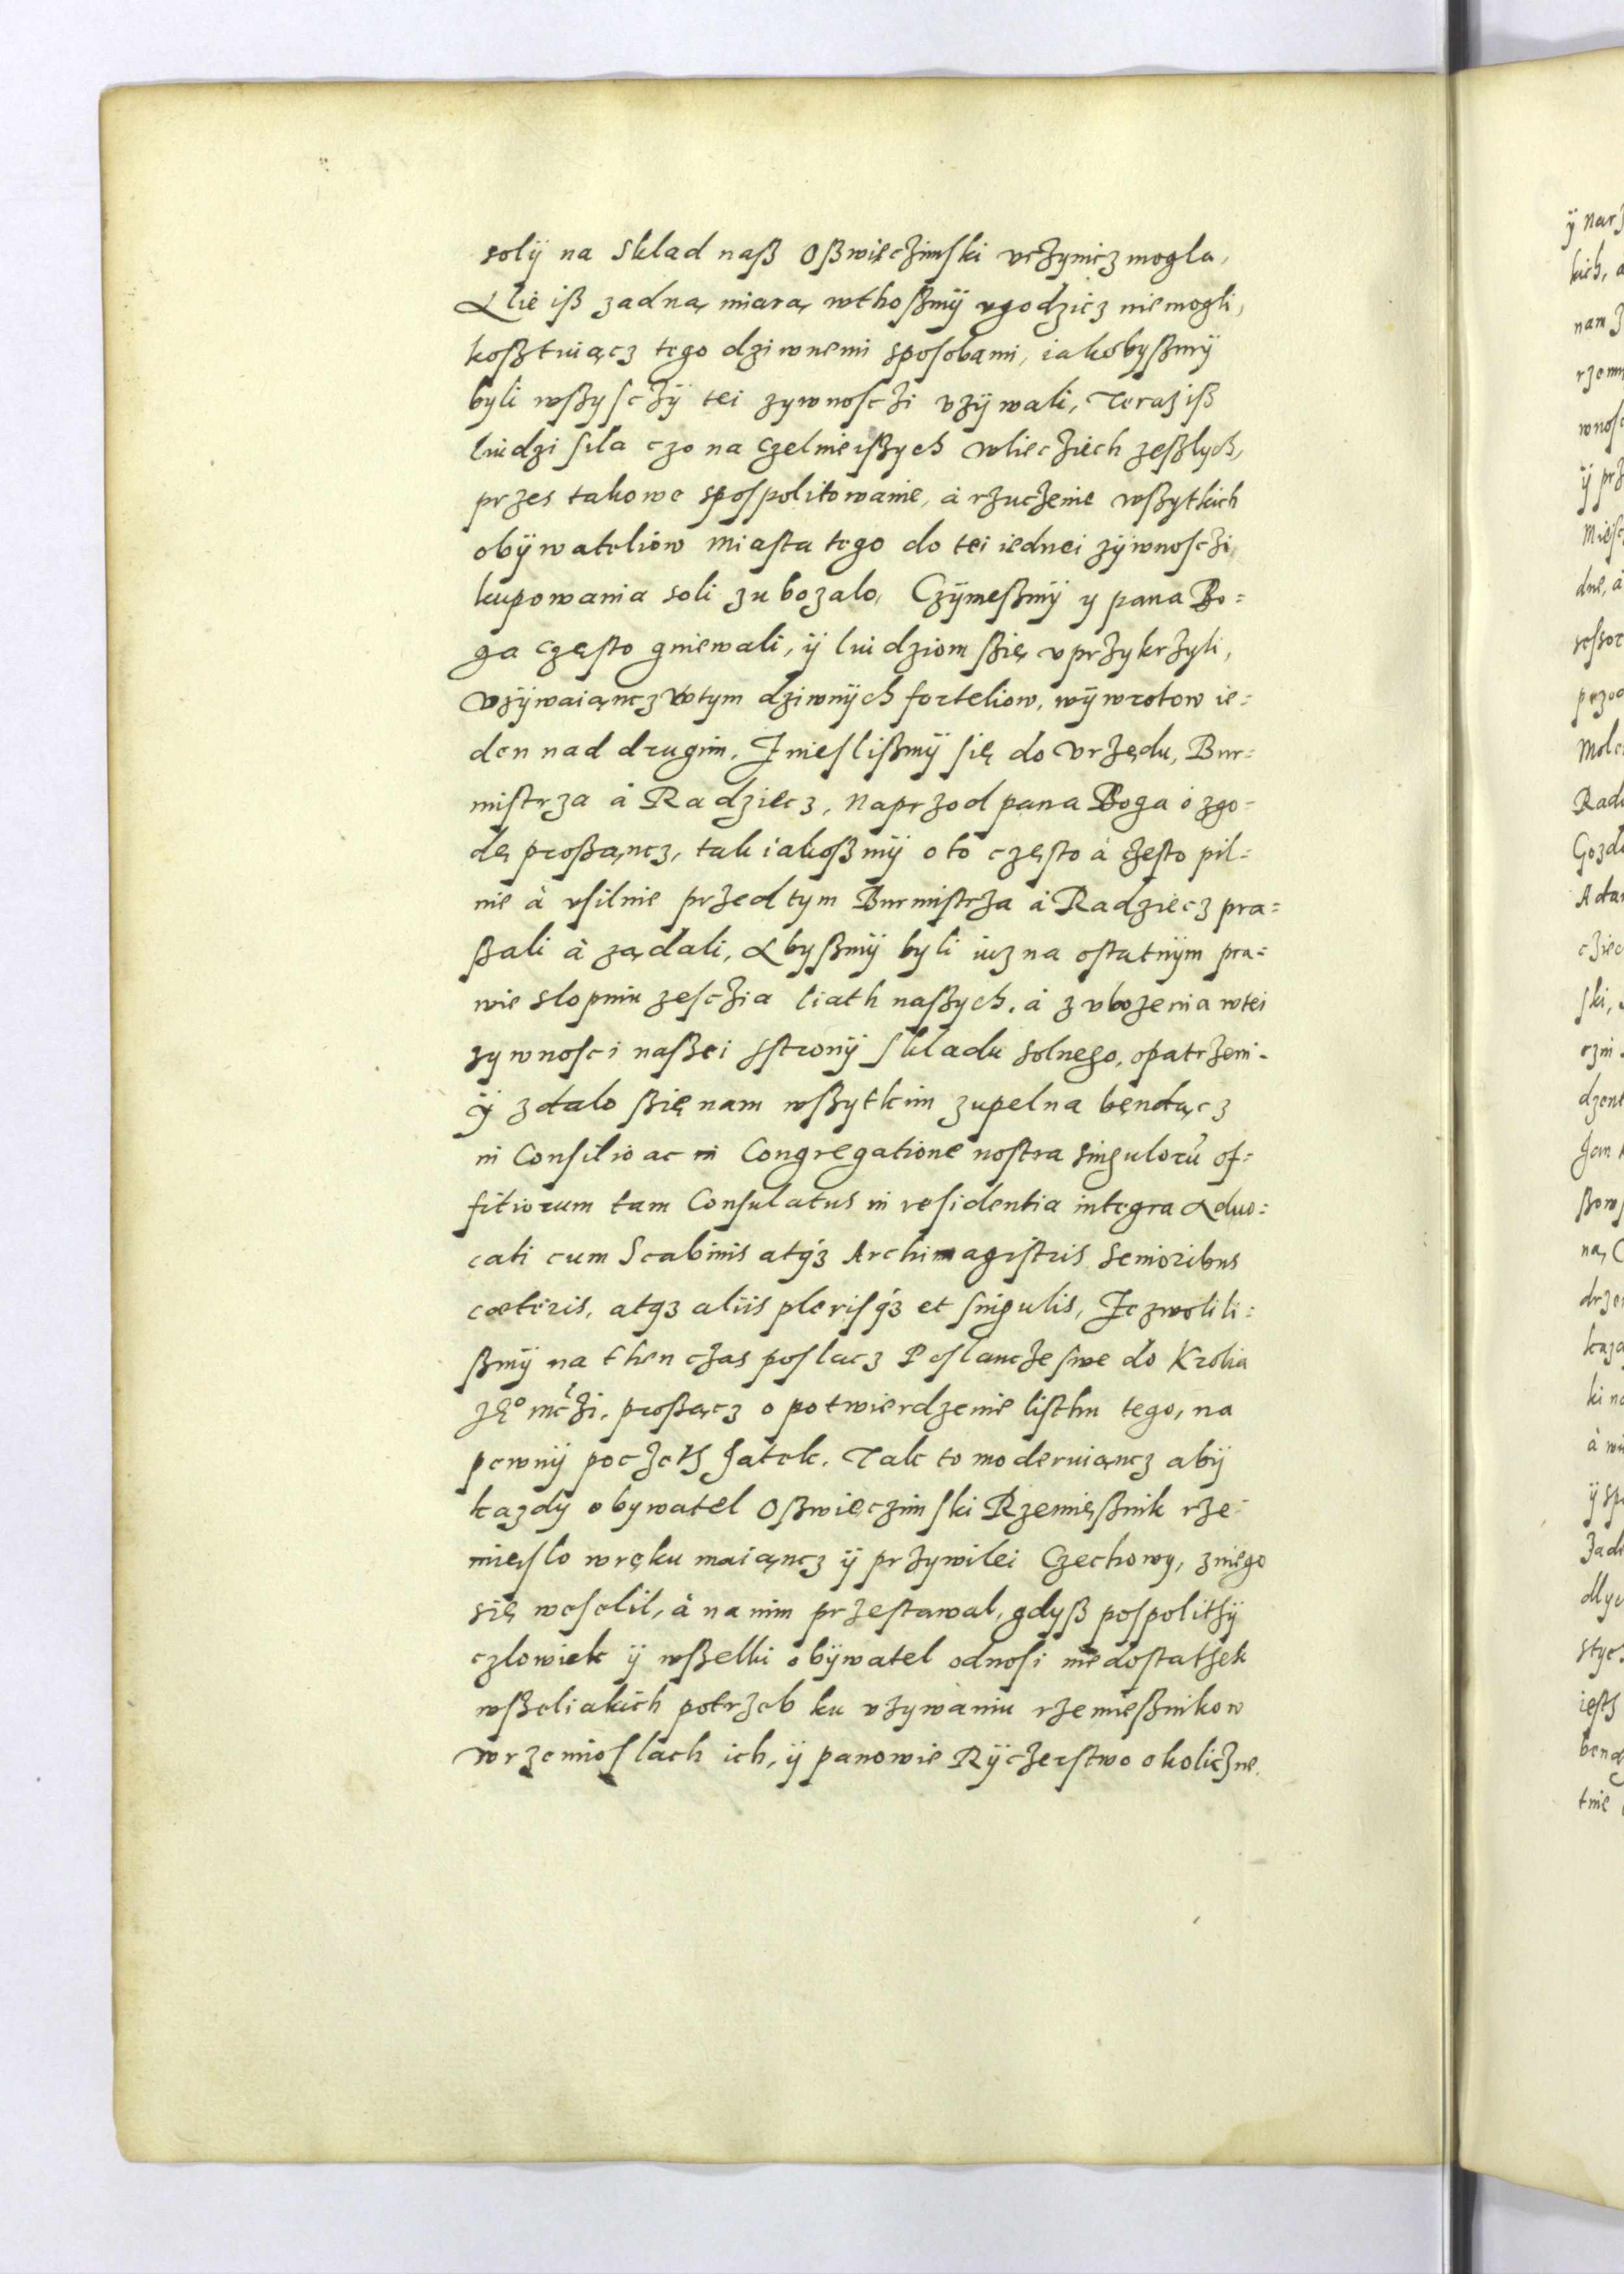 solÿ na Sklad naß Oßwięczimski vczynicz mogla,
Alie iß zadną miarą wthoßmÿ vgodzicz niemogli,
koßtuiącz tego dziwnemi sposobami, iakobyßmÿ
byli wßysczÿ tei zywnosczi vzÿwali, Teraz iß
liudzi sila czo naczelnieißych wliecziech zeßlych,
przes takowe spospolitowanie, à rzuczenie wßytkich
obÿwateliow Miasta tego do tei iednei zÿwnosczi
kupowania soli zubozalo, Czÿmeßmÿ y pana Bo=
ga często gniewali, ÿ liudziom ßię vprzykrzyli,
vzÿwaiąncz wtym dziwnÿch forteliow, wÿwrotow ie=
den nad drugim, Znieslißmÿ się do vrzędu, Bur=
mistrza à Radziecz, naprzod pana Boga o zgo=
dę proßąncz, tak iakoßmÿ oto często à często pil=
nie à vsilnie przedtym Burmistrza à Radziecz pra=
ßali à ządali, Abyßmÿ byli iuz na ostatnÿm pra=
wie stopniu zesczia liath naßych, à zubozenia wtei
zywnosci naßei sstronÿ skladu solnego, opatrzeni.
Ÿ zdalo ßię nam wßytkim zupelna będącz
in Consilio ac in Congregatione nostra singulorũ of=
fitiorum tam Consulatus in residentia integra Aduo=
cati cum Scabinis atq3 Archimagistris Senioribus
cœteris, atq3 aliis plerisq3 et singulis, Zezwolili=
ßmÿ na then czas poslacz Poslanczestwe do Krolia
Je° mczi, proßącz o potwierdzenie listhu tego, na
pewnÿ poczeth Jatek. Tak to moderuiąncz abÿ
kazdy obywatel Oßwięczimski Rzemięßnik rze=
mięslo wręku maiąncz ÿ przywilei Czechowy, zniego
się weselil, à na nim przestawal, gdyß pospolithÿ
czlowiek ÿ wßelki obÿwatel odnosi niedostathek
wßeliakich potrzeb ku vzywaniu rzemießnikow
wrzemioslach ich, ÿ panowie Rÿczerstwo okoliczne.